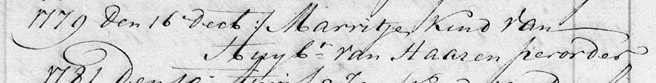 1779 Den 16 Decb: Marritje Kind van
Huyb:t van Haaren perorder
1781 Den